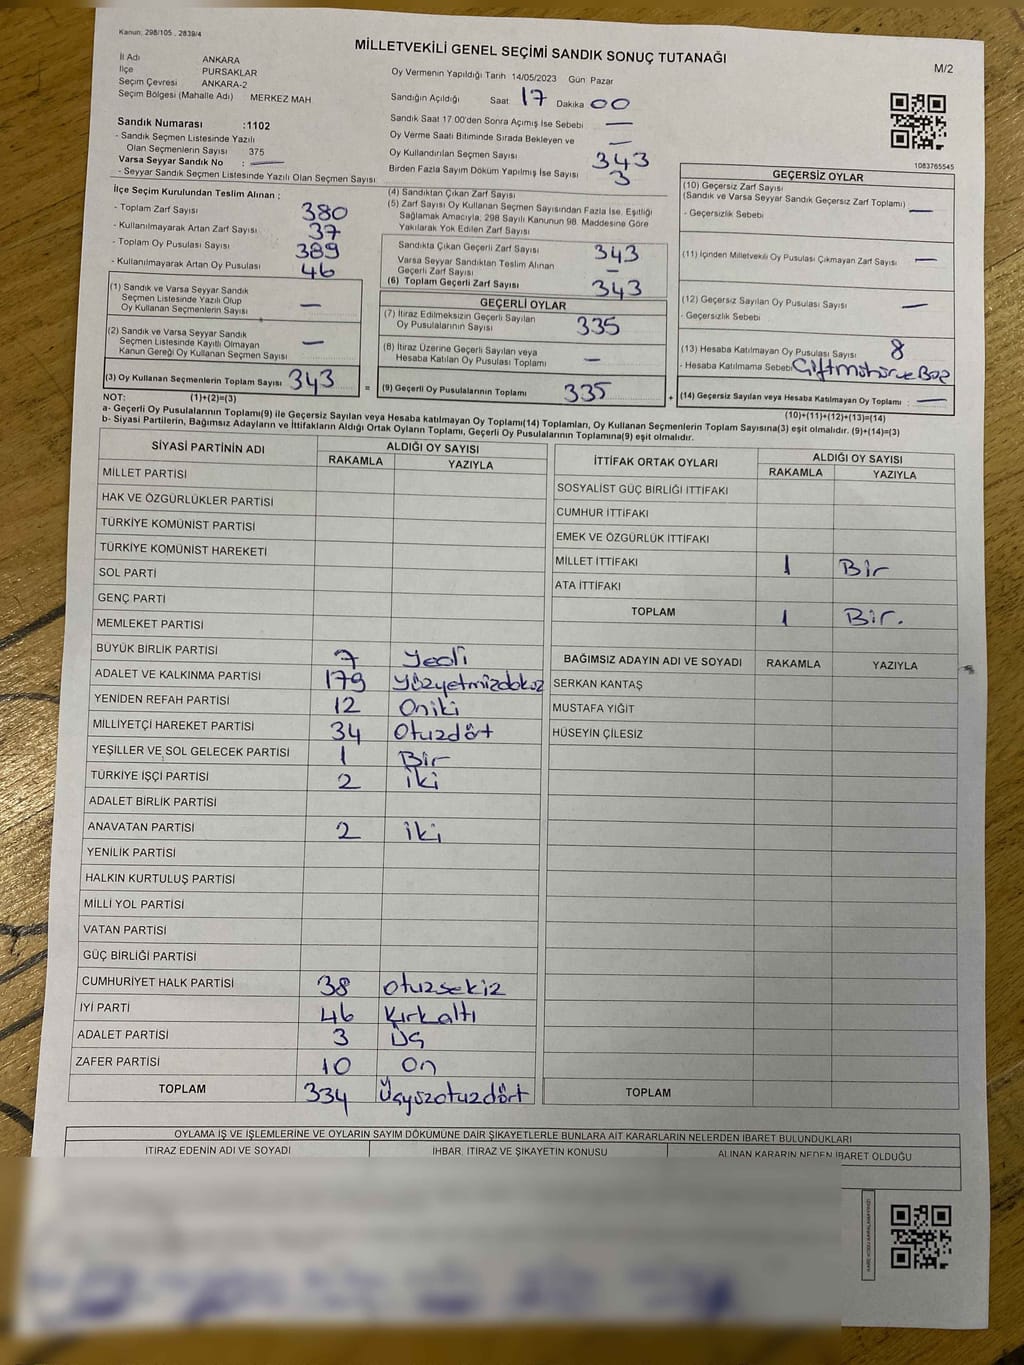 Kanun; 298/105 , 2839/4
MİLLETVEKİLİ GENEL SEÇİMİ SANDIK SONUÇ TUTANAĞI
M/2
İl Adı ANKARA
İlçe PURSAKLAR
Seçim Çevresi ANKARA-2
Seçim Bölgesi (Mahalle Adı) MERKEZ MAH
Oy Vermenin Yapıldığı Tarih 14/05/2023 Gün Pazar
Sandığın Açıldığı Saat 17 Dakika 00
Sandık Saat 17 00'den Sonra Açımış İse Sebebi —
Oy Verme Saati Bitiminde Sırada Bekleyen ve —
Oy Kullandırılan Seçmen Sayısı 343
Birden Fazla Sayım Döküm Yapılmış İse Sayısı 3
Sandık Numarası :1102
- Sandık Seçmen Listesinde Yazılı
Olan Seçmenlerin Sayısı 375
Varsa Seyyar Sandık No : —
- Seyyar Sandık Seçmen Listesinde Yazılı Olan Seçmen Sayısı
1083765545
İlçe Seçim Kurulundan Teslim Alınan ;
- Toplam Zarf Sayısı 380
- Kullanılmayarak Artan Zarf Sayısı 37
- Toplam Oy Pusulası Sayısı 389
- Kullanılmayarak Artan Oy Pusulası 46
(1) Sandık ve Varsa Seyyar Sandık
Seçmen Listesinde Yazılı Olup
Oy Kullanan Seçmenlerin Sayısı —
(2) Sandık ve Varsa Seyyar Sandık
Seçmen Listesinde Kayıtlı Olmayan
Kanun Gereği Oy Kullanan Seçmen Sayısı —
(3) Oy Kullanan Seçmenlerin Toplam Sayısı 343
(4) Sandıktan Çıkan Zarf Sayısı
(5) Zarf Sayısı Oy Kullanan Seçmen Sayısından Fazla İse, Eşitliği
Sağlamak Amacıyla; 298 Sayılı Kanunun 98. Maddesine Göre
Yakılarak Yok Edilen Zarf Sayısı
Sandıkta Çıkan Geçerli Zarf Sayısı 343
Varsa Seyyar Sandıktan Teslim Alınan
Geçerli Zarf Sayısı —
(6) Toplam Geçerli Zarf Sayısı 343
GEÇERLİ OYLAR
(7) İtiraz Edilmeksizin Geçerli Sayılan
Oy Pusulalarının Sayısı 335
(8) İtiraz Üzerine Geçerli Sayılan veya
Hesaba Katılan Oy Pusulası Toplamı —
= (9) Geçerli Oy Pusulalarının Toplamı 335
GEÇERSİZ OYLAR
(10) Geçersiz Zarf Sayısı
(Sandık ve Varsa Seyyar Sandık Geçersiz Zarf Toplamı) —
- Geçersizlik Sebebi
(11) İçinden Milletvekili Oy Pusulası Çıkmayan Zarf Sayısı —
(12) Geçersiz Sayılan Oy Pusulası Sayısı —
- Geçersizlik Sebebi
(13) Hesaba Katılmayan Oy Pusulası Sayısı 8
- Hesaba Katılmama Sebebi Çift mühür ve Boş
+ (14) Geçersiz Sayılan veya Hesaba Katılmayan Oy Toplamı : —
NOT: (1)+(2)=(3)
(10)+(11)+(12)+(13)=(14)
a- Geçerli Oy Pusulalarının Toplamı(9) ile Geçersiz Sayılan veya Hesaba katılmayan Oy Toplamı(14) Toplamları, Oy Kullanan Seçmenlerin Toplam Sayısına(3) eşit olmalıdır. (9)+(14)=(3)
b- Siyasi Partilerin, Bağımsız Adayların ve İttifakların Aldığı Ortak Oyların Toplamı, Geçerli Oy Pusulalarının Toplamına(9) eşit olmalıdır.
SİYASİ PARTİNİN ADI ALDIĞI OY SAYISI
RAKAMLA YAZIYLA
MİLLET PARTİSİ
HAK VE ÖZGÜRLÜKLER PARTİSİ
TÜRKİYE KOMÜNİST PARTİSİ
TÜRKİYE KOMÜNİST HAREKETİ
SOL PARTİ
GENÇ PARTİ
MEMLEKET PARTİSİ
BÜYÜK BİRLİK PARTİSİ 7 Yedi
ADALET VE KALKINMA PARTİSİ 179 Yüzyetmişdokuz
YENİDEN REFAH PARTİSİ 12 Oniki
MİLLİYETÇİ HAREKET PARTİSİ 34 Otuzdört
YEŞİLLER VE SOL GELECEK PARTİSİ 1 Bir
TÜRKİYE İŞÇİ PARTİSİ 2 iki
ADALET BİRLİK PARTİSİ
ANAVATAN PARTİSİ 2 iki
YENİLİK PARTİSİ
HALKIN KURTULUŞ PARTİSİ
MİLLİ YOL PARTİSİ
VATAN PARTİSİ
GÜÇ BİRLİĞİ PARTİSİ
CUMHURİYET HALK PARTİSİ 38 otuzsekiz
İYİ PARTİ 46 Kırkaltı
ADALET PARTİSİ 3 Üç
ZAFER PARTİSİ 10 On
TOPLAM 334 Üçyüzotuzdört
İTTİFAK ORTAK OYLARI ALDIĞI OY SAYISI
RAKAMLA YAZIYLA
SOSYALİST GÜÇ BİRLİĞİ İTTİFAKI
CUMHUR İTTİFAKI
EMEK VE ÖZGÜRLÜK İTTİFAKI
MİLLET İTTİFAKI 1 Bir
ATA İTTİFAKI
TOPLAM 1 Bir.
BAĞIMSIZ ADAYIN ADI VE SOYADI RAKAMLA YAZIYLA
SERKAN KANTAŞ
MUSTAFA YİĞİT
HÜSEYİN ÇİLESİZ
TOPLAM
OYLAMA İŞ VE İŞLEMLERİNE VE OYLARIN SAYIM DÖKÜMÜNE DAİR ŞİKAYETLERLE BUNLARA AİT KARARLARIN NELERDEN İBARET BULUNDUKLARI
İTİRAZ EDENİN ADI VE SOYADI İHBAR, İTİRAZ VE ŞİKAYETİN KONUSU ALINAN KARARIN NEDEN İBARET OLDUĞU